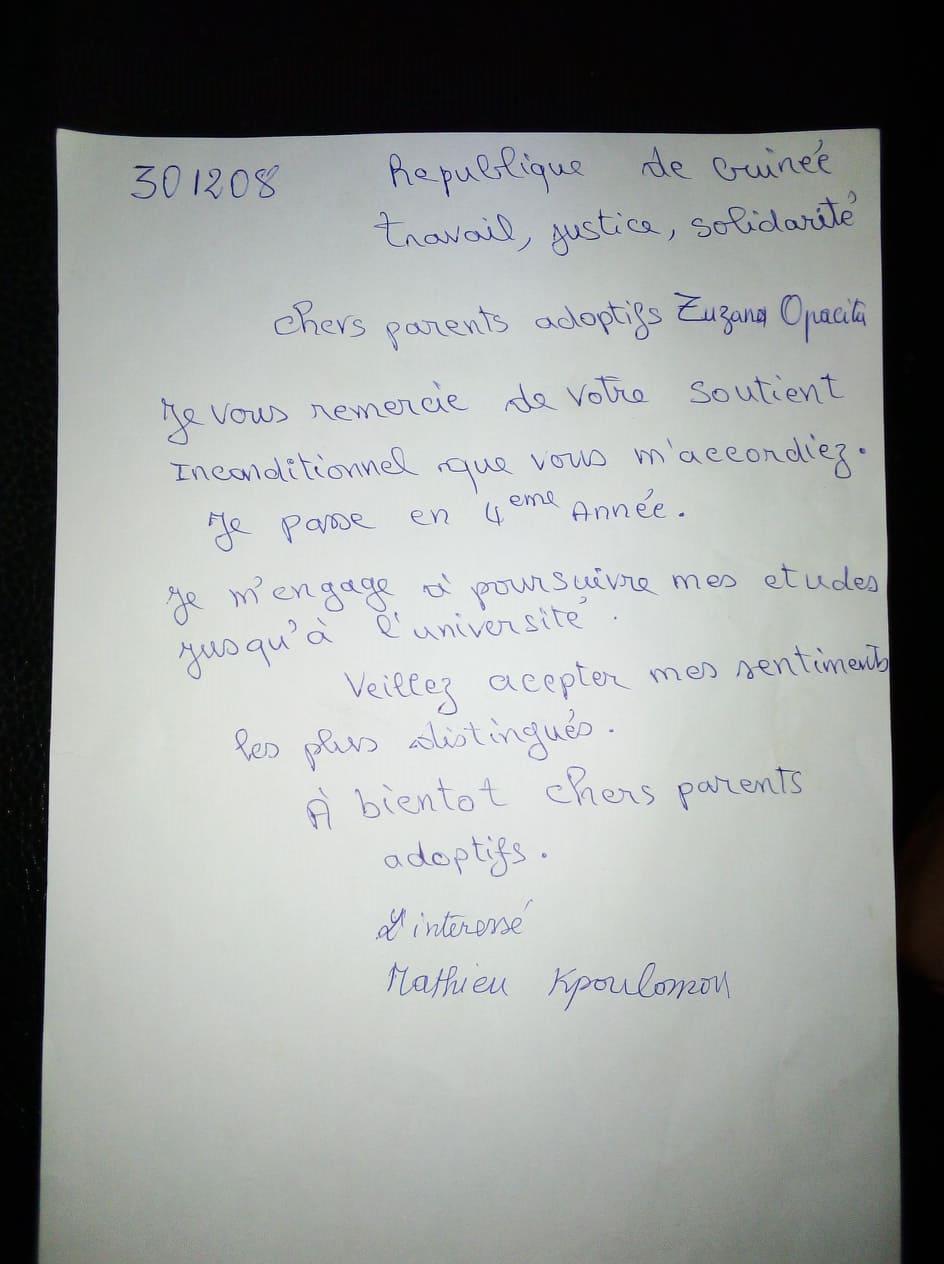 301208
Republique de Guinée
travail, justice, solidarité
chers parents adoptifs Zuzana Opacita
Je vous remercie de votre soutient
Inconditionnel que vous m'accordiez.
Je passe en 4eme Année.
Je m'engage à poursuivre mes etudes
jusqu'à l'université.
Veillez acepter mes sentiments
les plus distingués.
À bientot chers parents
adoptifs.
L'interessé
Mathieu Kpoulomou